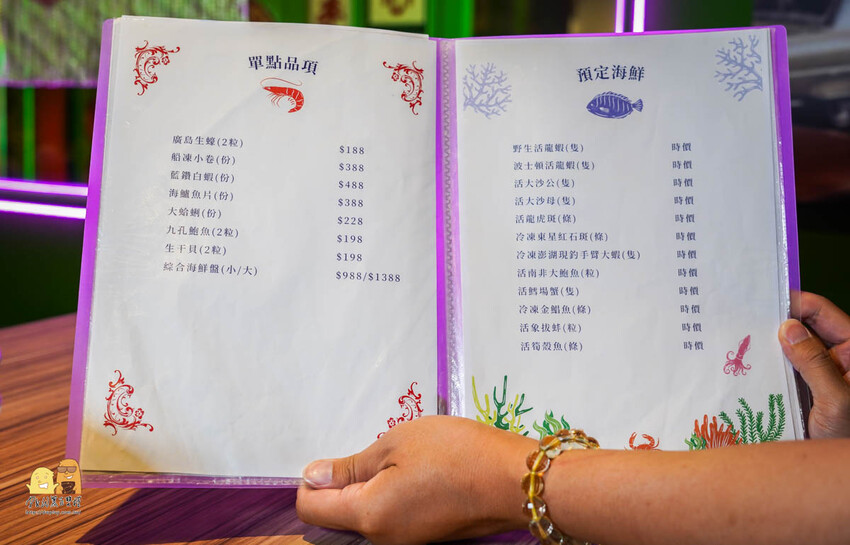 單點品項
廣島生蠔(2粒) $188
船凍小卷(份) $388
藍鑽白蝦(份) $488
海鱸魚片(份) $388
大蛤蜊(份) $228
九孔鮑魚(2粒) $198
生干貝(2粒) $198
綜合海鮮盤(小/大) $988/$1388
預定海鮮
野生活龍蝦(隻) 時價
波士頓活龍蝦(隻) 時價
活大沙公(隻) 時價
活大沙母(隻) 時價
活龍虎斑(條) 時價
冷凍東星紅石斑(條) 時價
冷凍澎湖現釣手臂大蝦(隻) 時價
活南非大鮑魚(粒) 時價
活鱈場蟹(隻) 時價
冷凍金鯧魚(條) 時價
活象拔蚌(粒) 時價
活筍殼魚(條) 時價